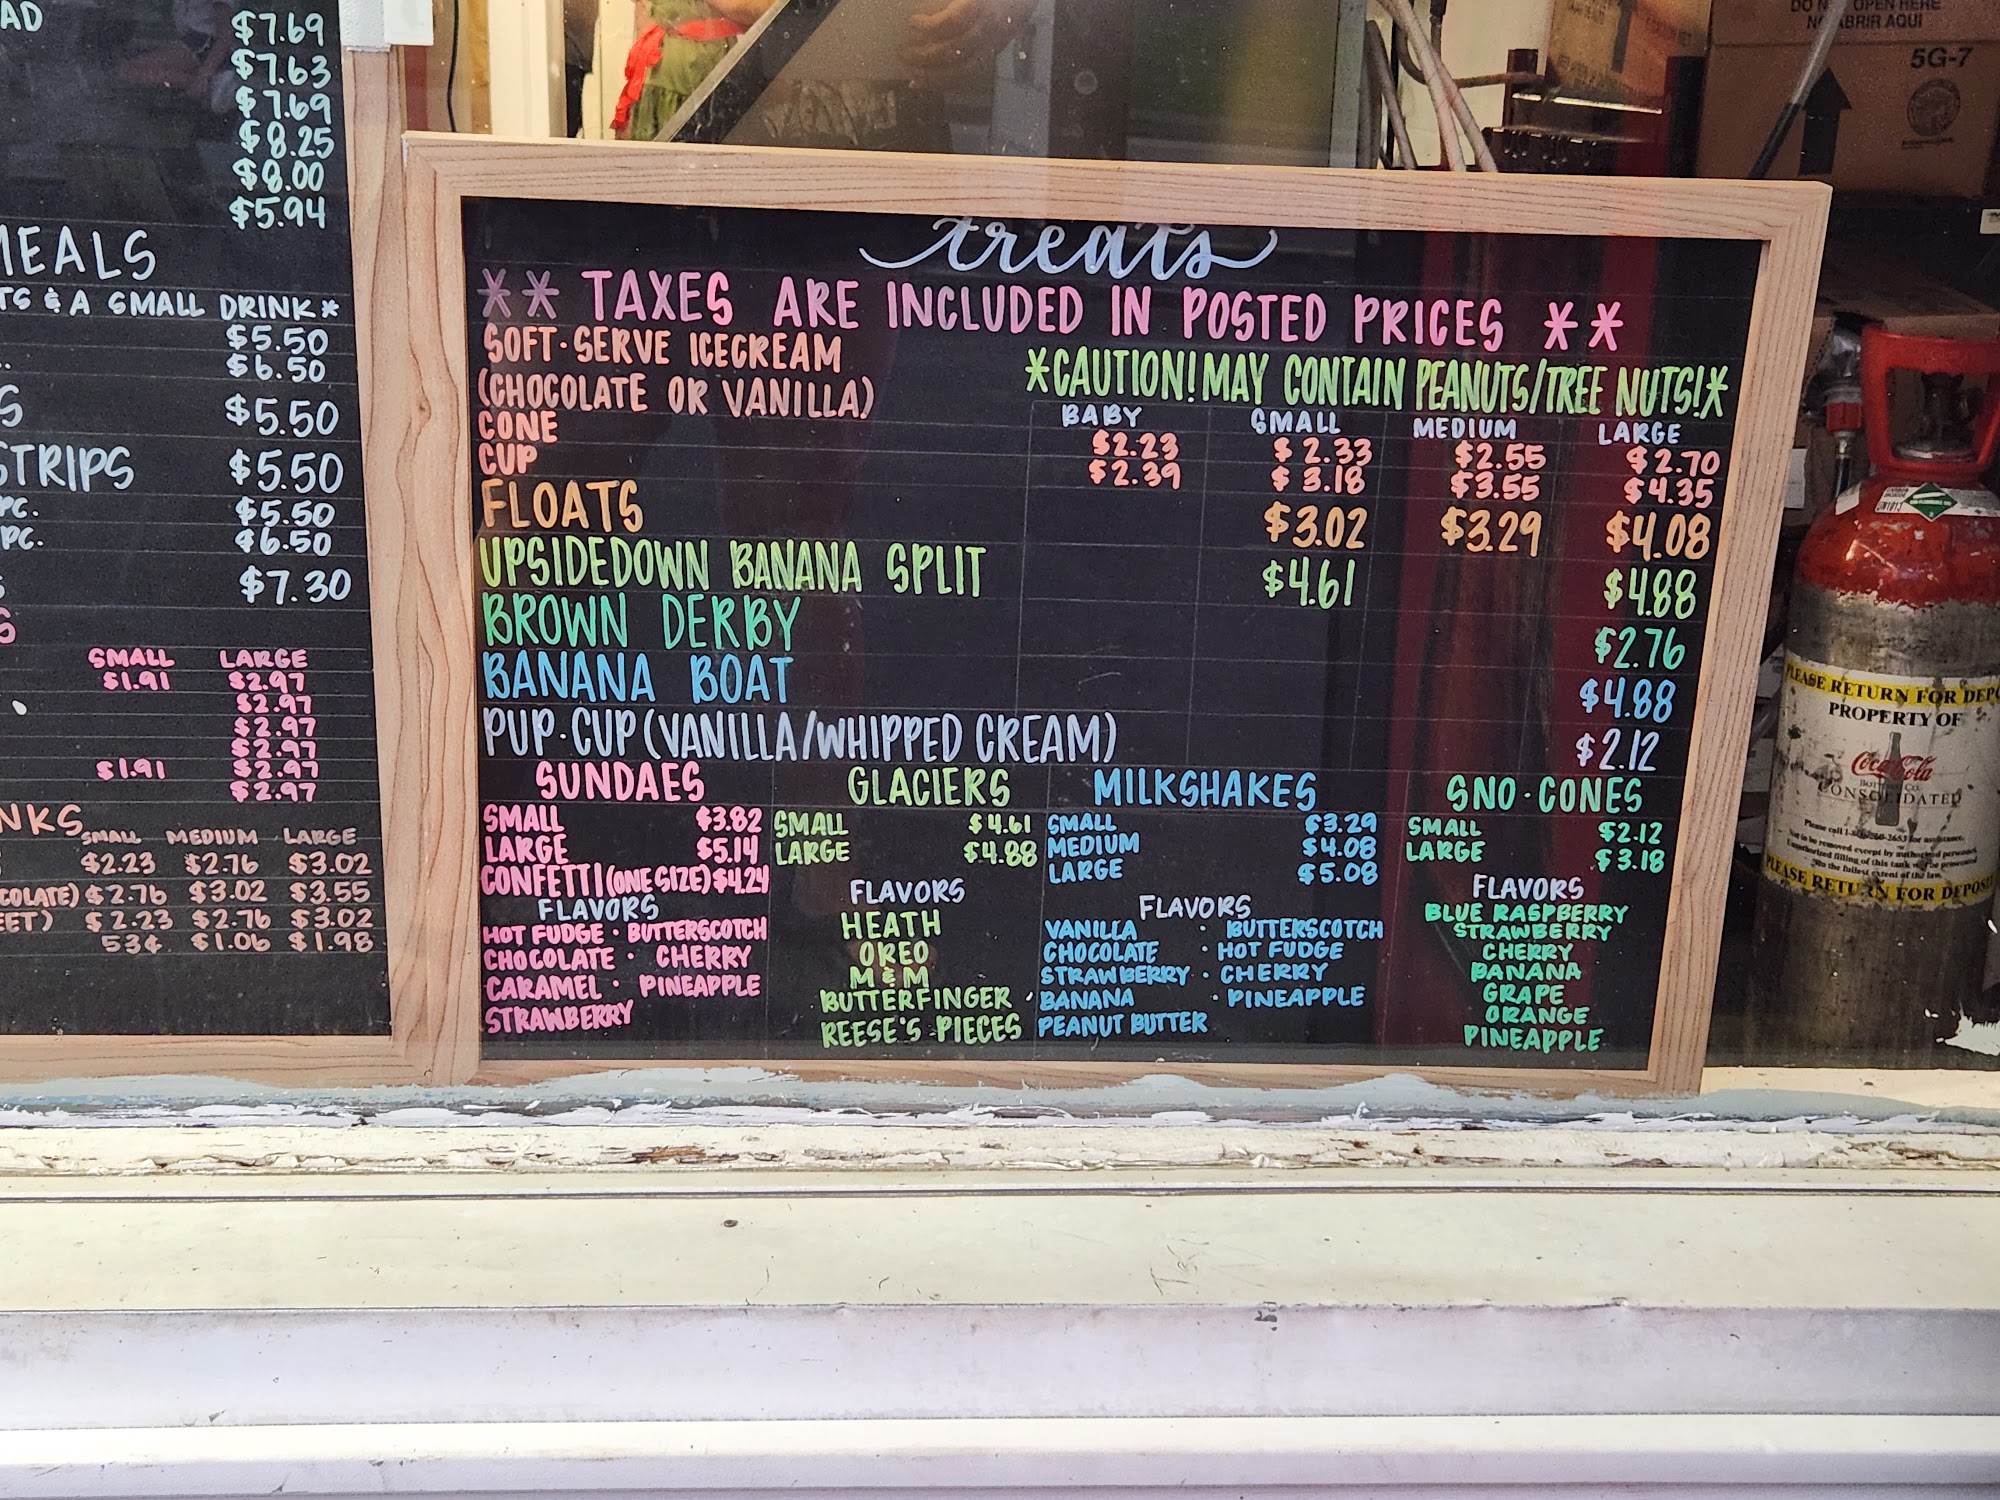 AD $7.69
$7.63
$7.69
$8.25
$8.00
$5.94
MEALS
TS & A SMALL DRINK*
$5.50
$6.50
S $5.50
STRIPS $5.50
PC. $5.50
PC. $6.50
S $7.30
S
SMALL LARGE
$1.91 $2.97
$2.97
$2.97
$2.97
$1.91 $2.97
$2.97
NKS SMALL MEDIUM LARGE
$2.23 $2.76 $3.02
COLATE) $2.76 $3.02 $3.55
EET) $2.23 $2.76 $3.02
53¢ $1.06 $1.98
treats
** TAXES ARE INCLUDED IN POSTED PRICES **
SOFT·SERVE ICECREAM
(CHOCOLATE OR VANILLA)
*CAUTION! MAY CONTAIN PEANUTS/TREE NUTS!*
BABY SMALL MEDIUM LARGE
CONE $2.23 $2.33 $2.55 $2.70
CUP $2.39 $3.18 $3.55 $4.35
FLOATS $3.02 $3.29 $4.08
UPSIDEDOWN BANANA SPLIT $4.61 $4.88
BROWN DERBY $2.76
BANANA BOAT $4.88
PUP·CUP (VANILLA/WHIPPED CREAM) $2.12
SUNDAES
SMALL $3.82
LARGE $5.14
CONFETTI (ONE SIZE) $4.24
FLAVORS
HOT FUDGE · BUTTERSCOTCH
CHOCOLATE · CHERRY
CARAMEL · PINEAPPLE
STRAWBERRY
GLACIERS
SMALL $4.61
LARGE $4.88
FLAVORS
HEATH
OREO
M&M
BUTTERFINGER
REESE'S PIECES
MILKSHAKES
SMALL $3.29
MEDIUM $4.08
LARGE $5.08
FLAVORS
VANILLA · BUTTERSCOTCH
CHOCOLATE · HOT FUDGE
STRAWBERRY · CHERRY
BANANA · PINEAPPLE
PEANUT BUTTER
SNO·CONES
SMALL $2.12
LARGE $3.18
FLAVORS
BLUE RASPBERRY
STRAWBERRY
CHERRY
BANANA
GRAPE
ORANGE
PINEAPPLE
DO N OPEN HERE
NO ABRIR AQUI
5G-7
PLEASE RETURN FOR DEPO
PROPERTY OF
Coca-Cola
BOTTLING CO.
CONSOLIDATED
PLEASE RETURN FOR DEPOSIT